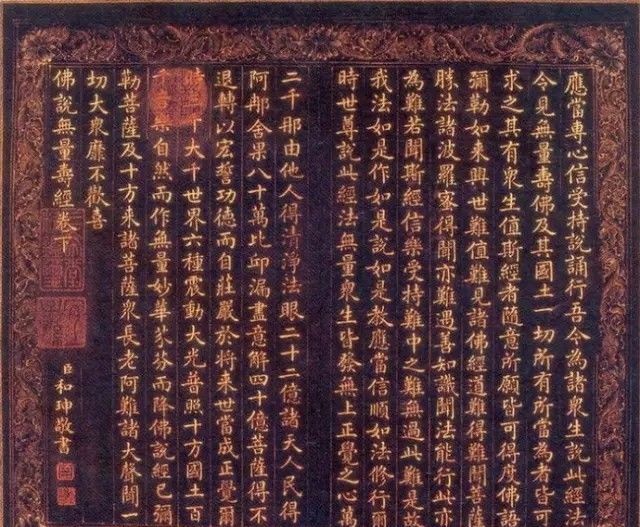 應當專心信受持說誦行吾今為諸衆生說此經法
今見無量壽佛及其國土一切所有所當為者皆可
求之其有衆生值斯經者隨意所願皆可得度佛語
彌勒如來興世難值難見諸佛經道難得難聞菩薩
勝法諸波羅蜜得聞亦難遇善知識聞法能行此亦
為難若聞斯經信樂受持難中之難無過此難是故
我法如是作如是說如是教應當信順如法修行爾
時世尊說此經法無量衆生皆發無上正覺之心萬
二千那由他人得清淨法眼二十二億諸天人民得
阿那舍果八十萬比邱漏盡意解四十億菩薩得不
退轉以宏誓功德而自莊嚴於將來世當成正覺爾
時千大千世界六種震動大光普照十方國土百
千樂自然而作無量妙華芬而降佛說經已彌
勒菩薩及十方來諸菩薩衆長老阿難諸大聲聞一
切大衆靡不歡喜
佛說無量壽經卷下
臣和珅敬書